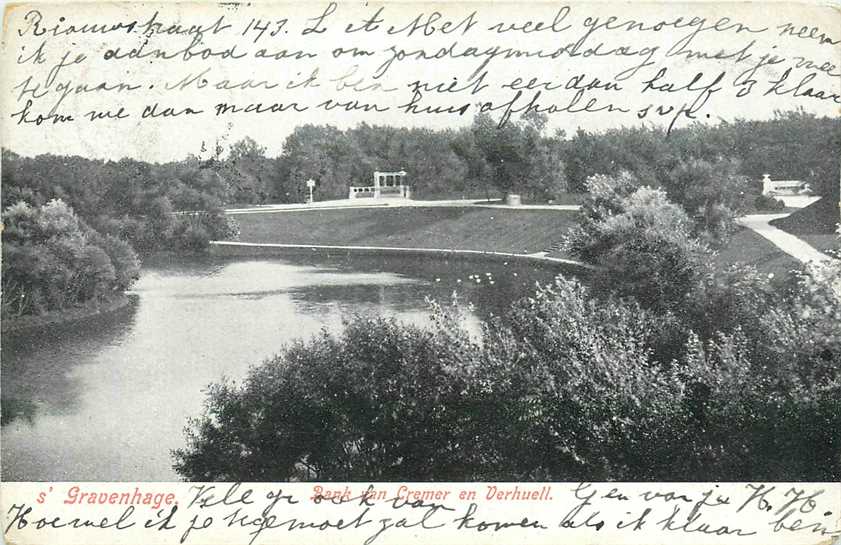 Riouwstraat 143. L et Met veel genoegen neem
ik je aanbod aan om zondagmiddag met je mee
te gaan. Maar ik ben niet eerdan half 3 klaar
kom me dan maar van huis afholen svp.
s' Gravenhage, Bank van Cremer en Verhuell.
Vele gr ook van Gen voor ju H. H.
Hoewel ik je tegemoet zal komen als ik klaar ben